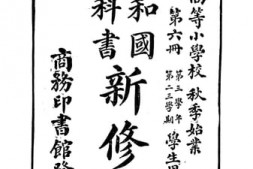 高等小學校 秋季始業
第六冊 第三學年 第二三學期 學生用
和國
新修
科書
商務印書館